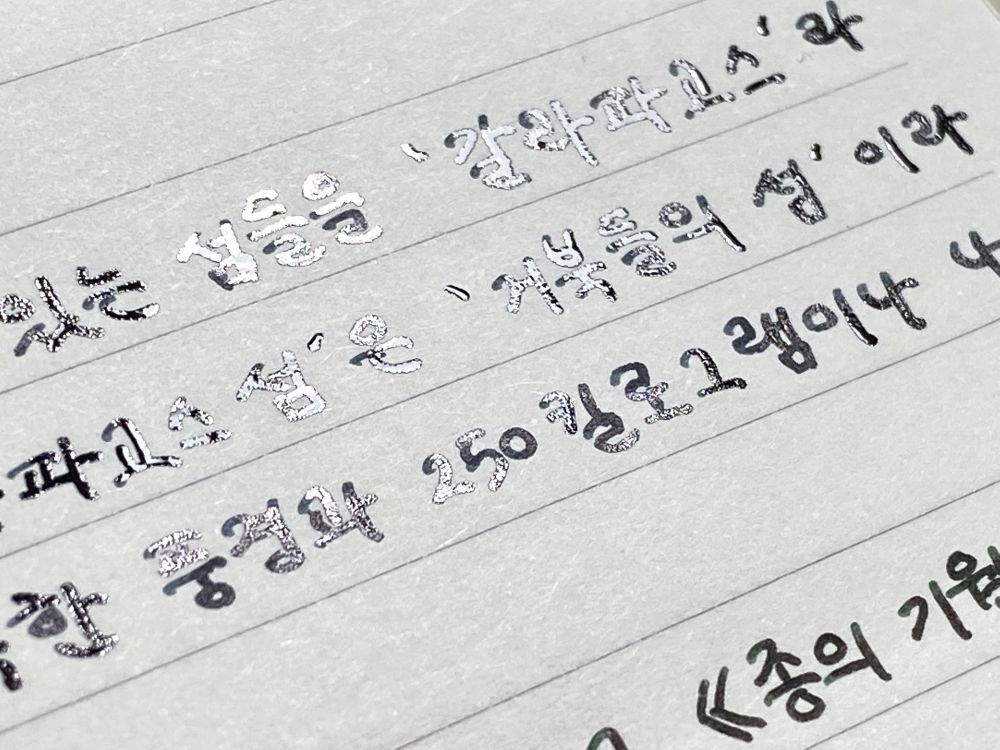 있는 섬들을 '갈라파고스'라
파고스 섬'은 '거북들의 섬'이라
한 풍경과 250킬로그램이나 나
《종의 기원